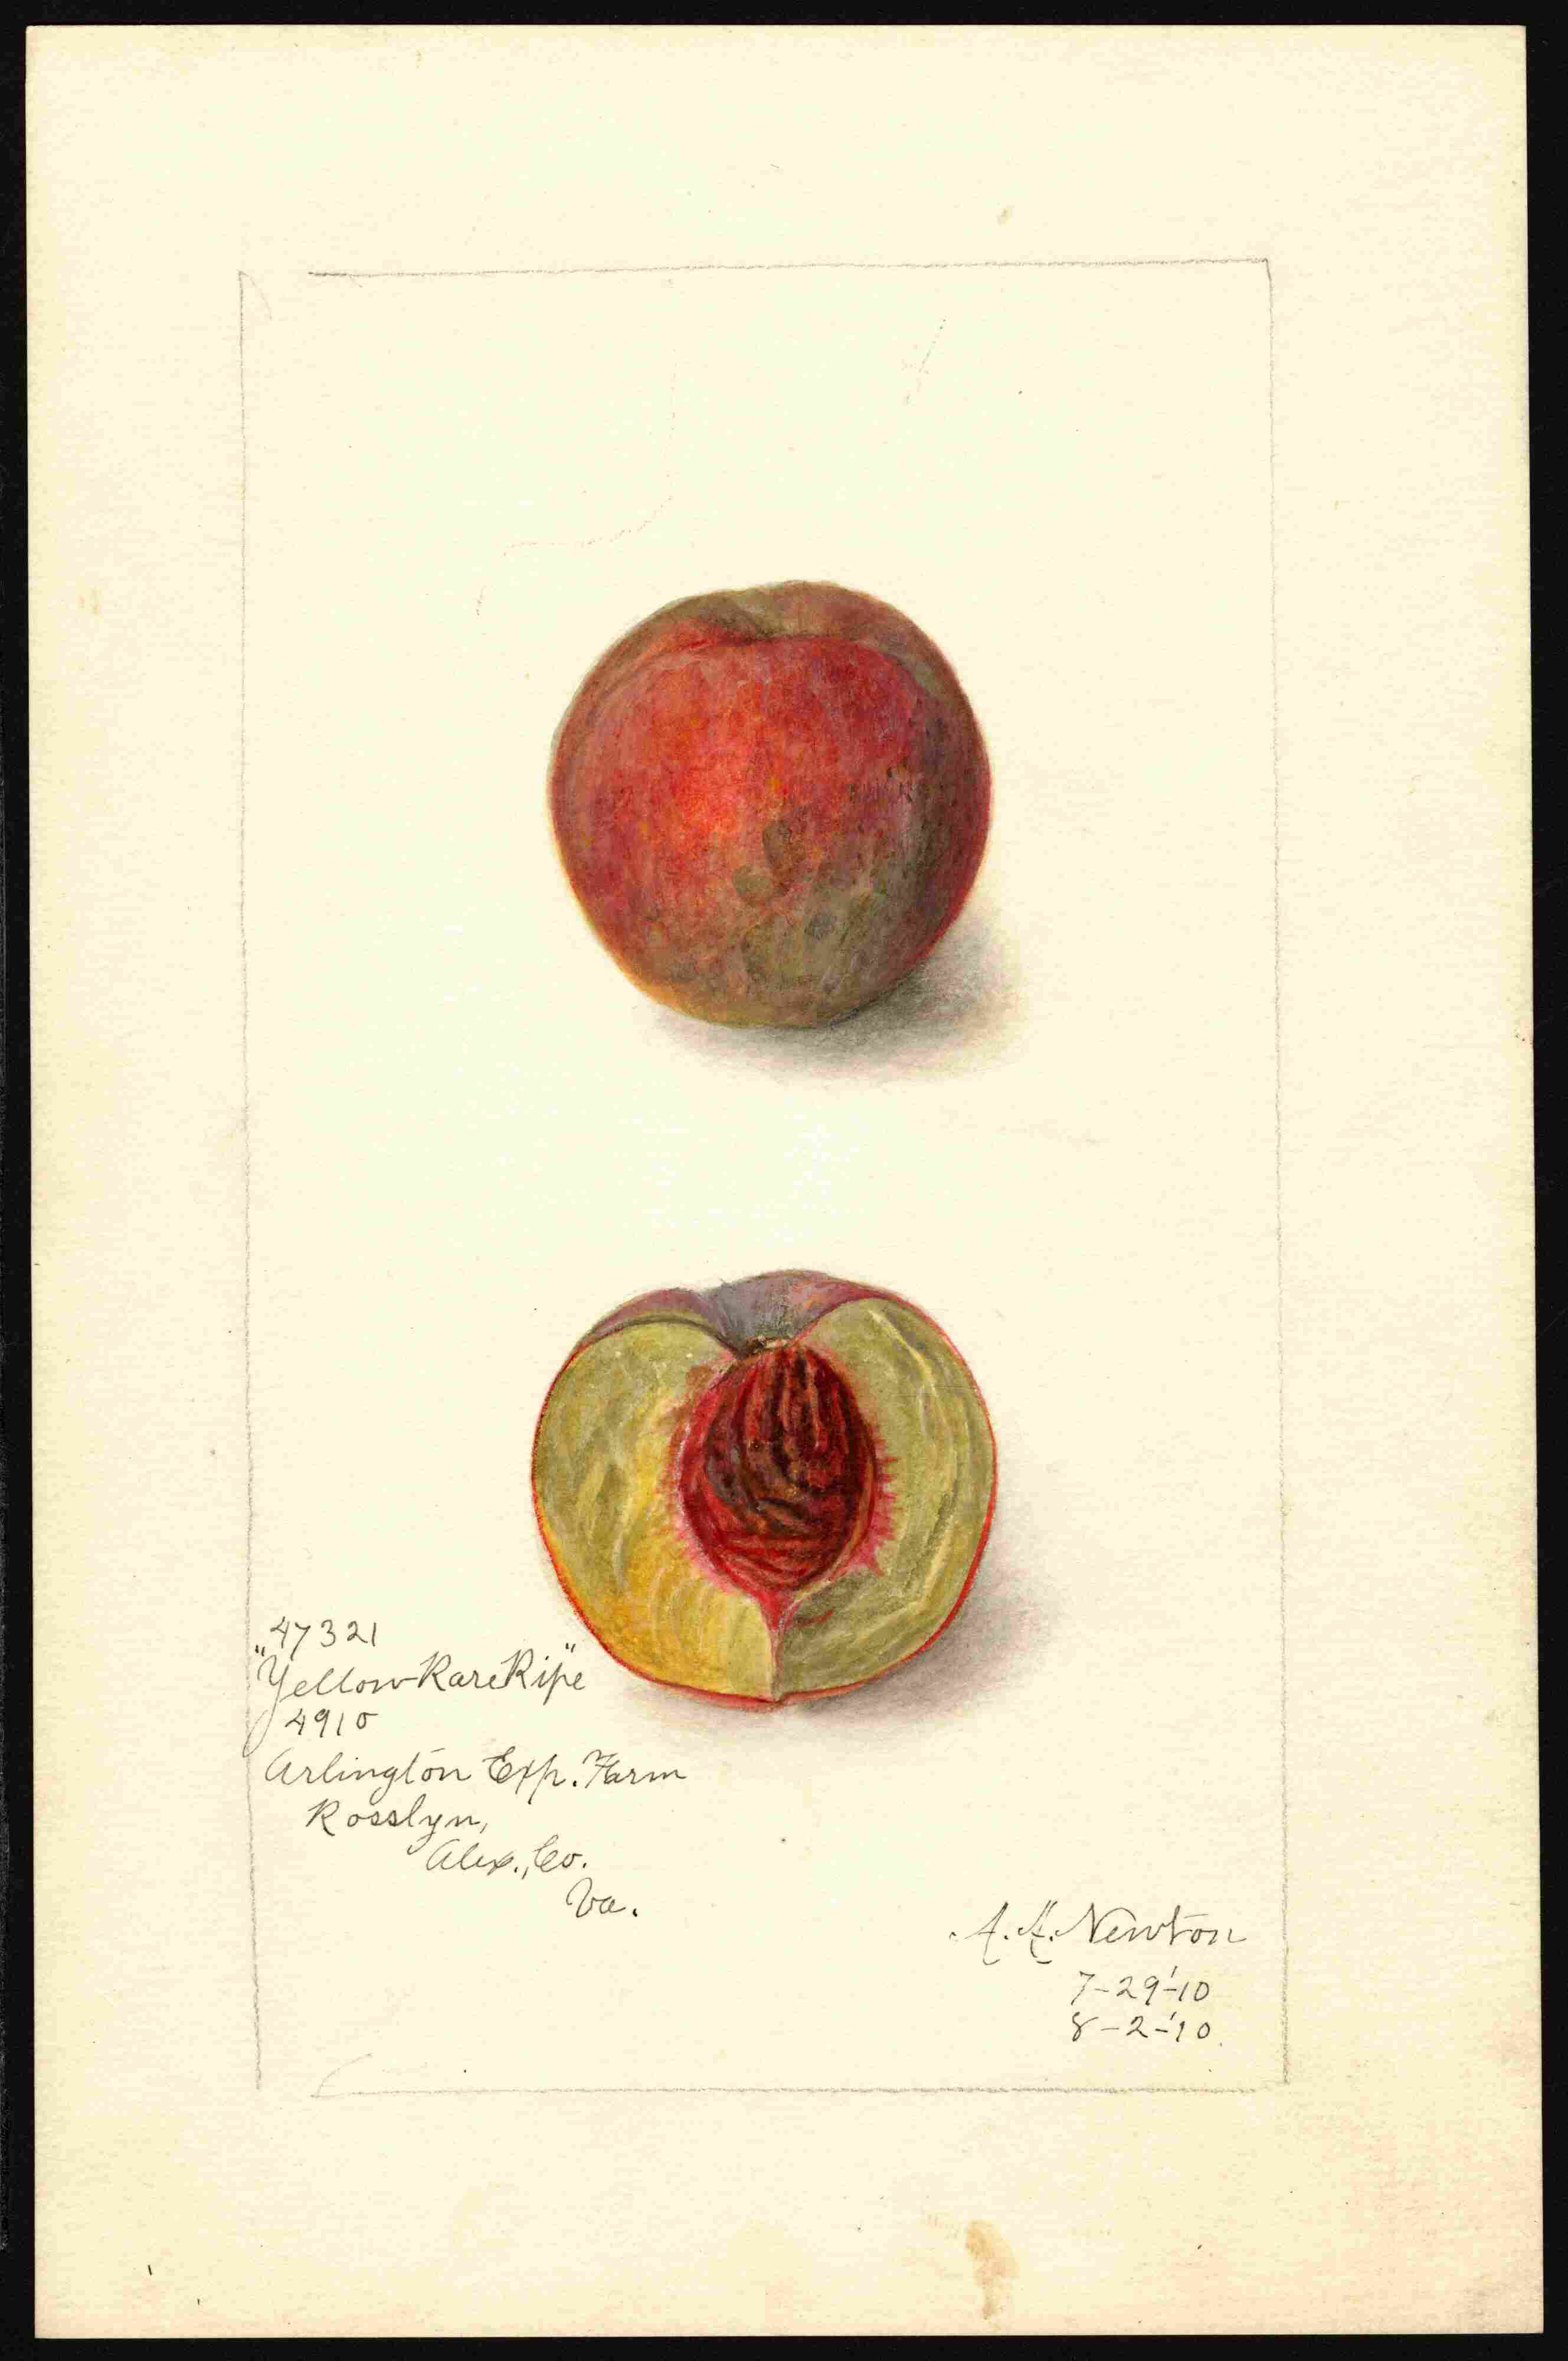 47321
"Yellow Rare Ripe"
4910
Arlington Exp. Farm
Rosslyn,
Alex., Co.
Va.
A. A. Newton
7-29-'10
8-2-'10.